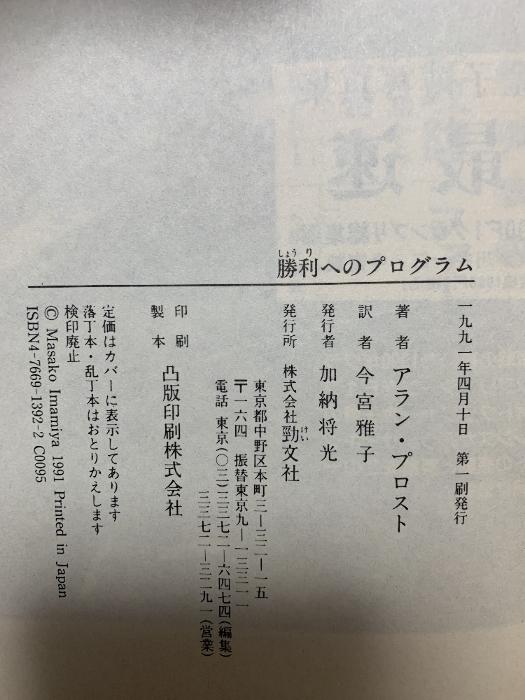 勝利へのプログラム
しょうり
一九九一年四月十日　第一刷発行
著者　アラン・プロスト
訳者　今宮雅子
発行者　加納将光
発行所　株式会社勁文社
けい
東京都中野区本町三―三二―一五
〒一六四　振替東京九―一三三一一
電話　東京(〇三)三三七二―六四七四(編集)
三三七二―三二九一(営業)
印刷
製本　凸版印刷株式会社
定価はカバーに表示してあります
落丁本・乱丁本はおとりかえします
検印廃止
© Masako Imamiya 1991 Printed in Japan
ISBN4-7669-1392-2 C0095